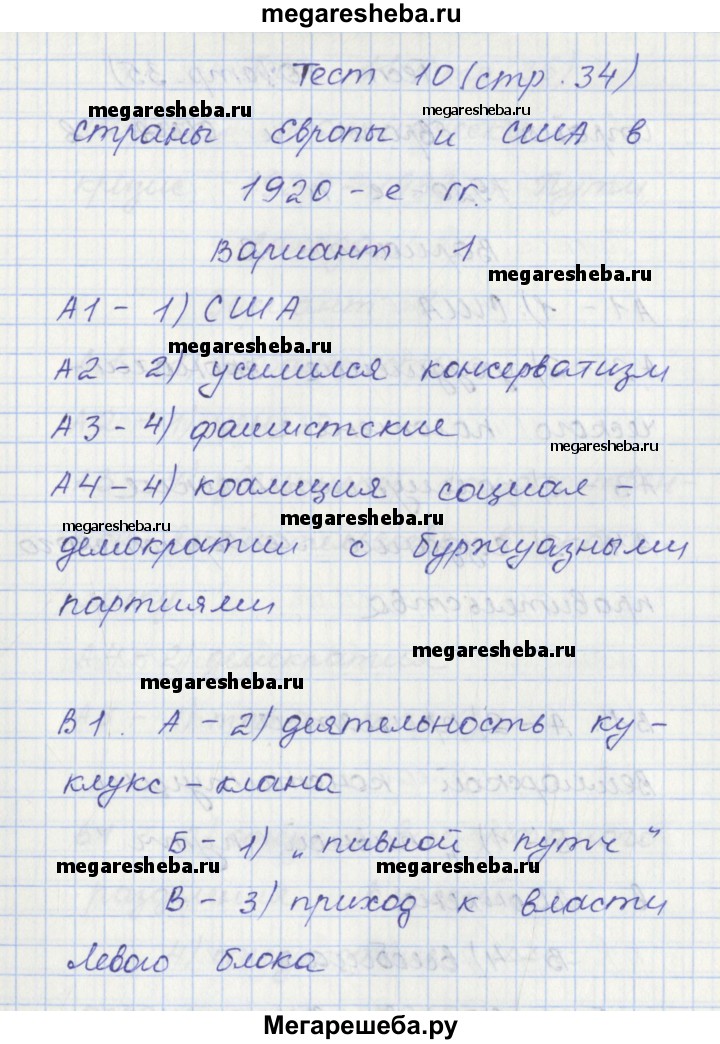 megaresheba.ru
Тест 10 (стр. 34)
megaresheba.ru megaresheba.ru
страны Европы и США в
1920 - е гг.
Вариант 1
megaresheba.ru
А1 - 1) США
megaresheba.ru
А2 - 2) усилился консерватизм
А3 - 4) фашистские
megaresheba.ru
А4 - 4) коалиция социал -
megaresheba.ru megaresheba.ru
демократии с буржуазными
партиями
megaresheba.ru
megaresheba.ru
В1. А - 2) деятельность ку -
клукс - клана
Б - 1) „пивной путч“
megaresheba.ru megaresheba.ru
В - 3) приход к власти
Левого блока
Мегарешеба.ру